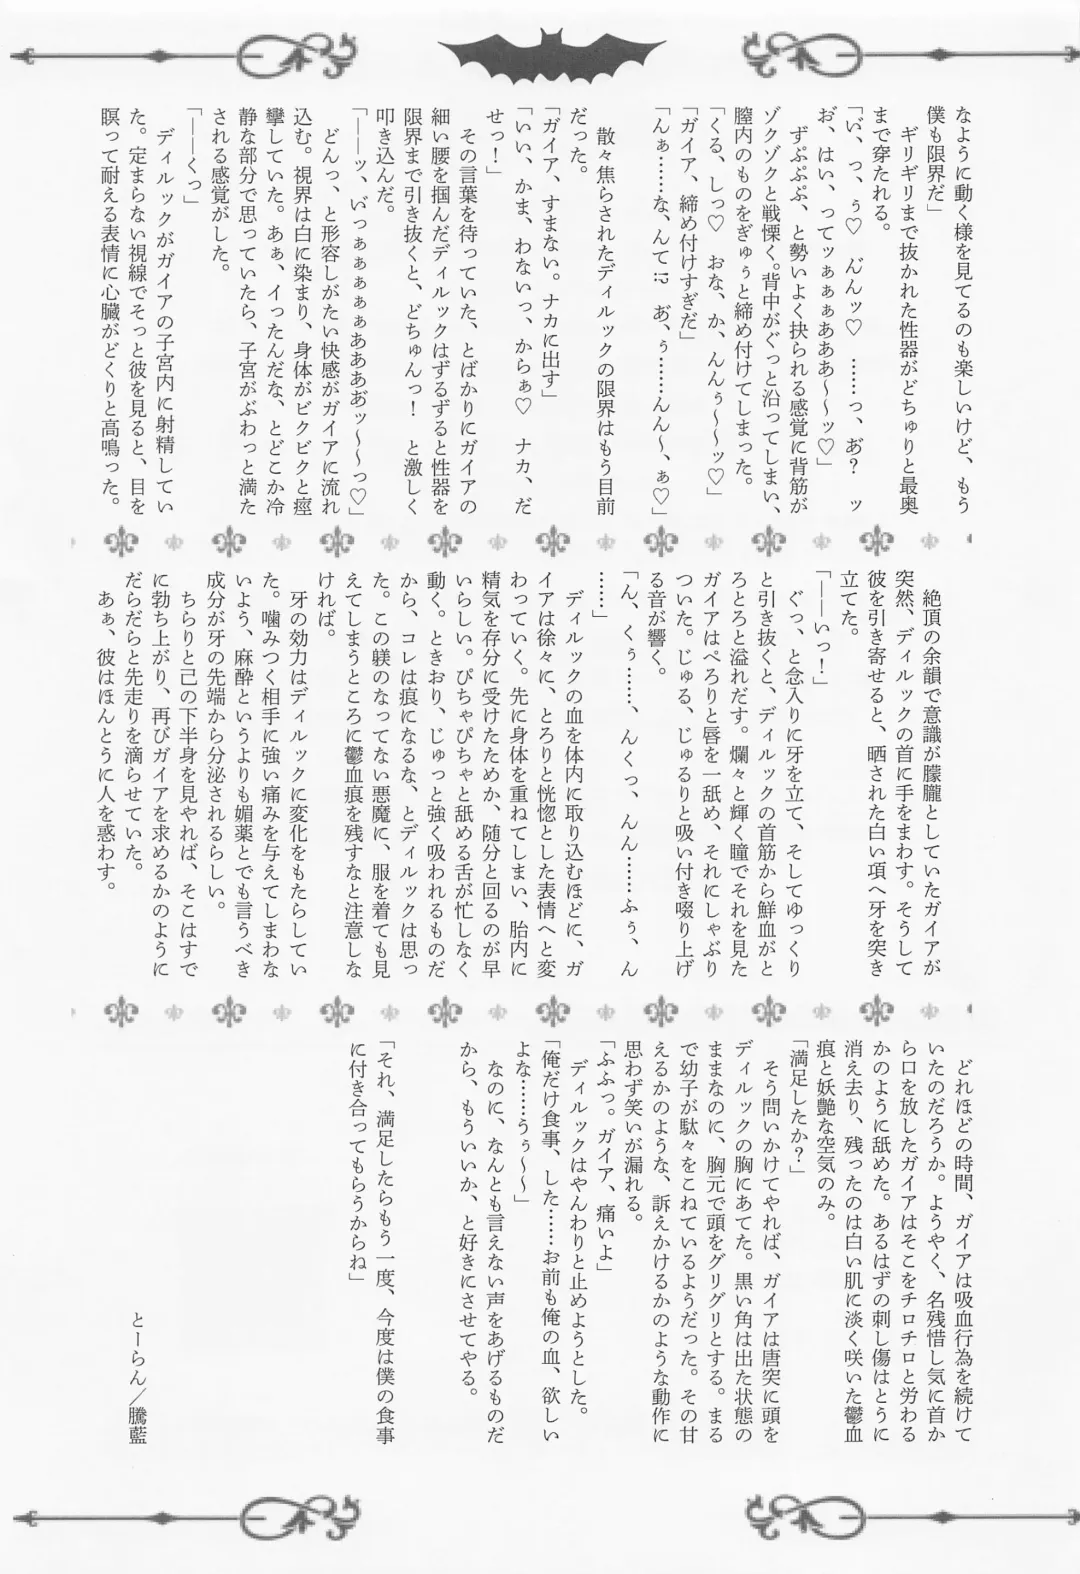 なように動く様を見てるのも楽しいけど、もう
僕も限界だ」
　ギリギリまで抜かれた性器がどちゅりと最奥
まで穿たれる。
「い゙、っ、ぅ♡　ん゙んッ♡　……っ、あ゙？　ッ
お、はい、ってッぁぁぁあああ～～ッ♡」
　ずぷぷぷ、と勢いよく抉られる感覚に背筋が
ゾクゾクと戦慄く。背中がぐっと沿ってしまい、
膣内のものをぎゅぅと締め付けてしまった。
「くる、しっ♡　おな、か、んんぅ～～ッ♡」
「ガイア、締め付けすぎだ」
「んぁ……な、んて⁉　あ゙、ぅ……んん～、ぁ♡」
　散々焦らされたディルックの限界はもう目前
だった。
「ガイア、すまない。ナカに出す」
「いい、かま、わないっ、からぁ♡　ナカ、だ
せっ！」
　その言葉を待っていた、とばかりにガイアの
細い腰を掴んだディルックはずるずると性器を
限界まで引き抜くと、どちゅんっ！　と激しく
叩き込んだ。
「――ッ、い゙っぁぁぁぁぁああああ゙ッ～～っ♡」
　どんっ、と形容しがたい快感がガイアに流れ
込む。視界は白に染まり、身体がビクビクと痙
攣していた。あぁ、イったんだな、とどこか冷
静な部分で思っていたら、子宮がぶわっと満た
される感覚がした。
「――くっ」
　ディルックがガイアの子宮内に射精してい
た。定まらない視線でそっと彼を見ると、目を
瞑って耐える表情に心臓がどくりと高鳴った。
　絶頂の余韻で意識が朦朧としていたガイアが
突然、ディルックの首に手をまわす。そうして
彼を引き寄せると、晒された白い項へ牙を突き
立てた。
「――いっ！」
　ぐっ、と念入りに牙を立て、そしてゆっくり
と引き抜くと、ディルックの首筋から鮮血がと
ろとろと溢れだす。爛々と輝く瞳でそれを見た
ガイアはぺろりと唇を一舐め、それにしゃぶり
ついた。じゅる、じゅるりと吸い付き啜り上げ
る音が響く。
「ん、くぅ……、んくっ、んん……ふぅ、ん
……」
　ディルックの血を体内に取り込むほどに、ガ
イアは徐々に、とろりと恍惚とした表情へと変
わっていく。先に身体を重ねてしまい、胎内に
精気を存分に受けたためか、随分と回るのが早
いらしい。ぴちゃぴちゃと舐める舌が忙しなく
動く。ときおり、じゅっと強く吸われるものだ
から、コレは痕になるな、とディルックは思っ
た。この躾のなってない悪魔に、服を着ても見
えてしまうところに鬱血痕を残すなと注意しな
ければ。
　牙の効力はディルックに変化をもたらしてい
た。噛みつく相手に強い痛みを与えてしまわな
いよう、麻酔というよりも媚薬とでも言うべき
成分が牙の先端から分泌されるらしい。
　ちらりと己の下半身を見やれば、そこはすで
に勃ち上がり、再びガイアを求めるかのように
だらだらと先走りを滴らせていた。
　あぁ、彼はほんとうに人を惑わす。
　どれほどの時間、ガイアは吸血行為を続けて
いたのだろうか。ようやく、名残惜し気に首か
ら口を放したガイアはそこをチロチロと労わる
かのように舐めた。あるはずの刺し傷はとうに
消え去り、残ったのは白い肌に淡く咲いた鬱血
痕と妖艶な空気のみ。
「満足したか？」
　そう問いかけてやれば、ガイアは唐突に頭を
ディルックの胸にあてた。黒い角は出た状態の
ままなのに、胸元で頭をグリグリとする。まる
で幼子が駄々をこねているようだった。その甘
えるかのような、訴えかけるかのような動作に
思わず笑いが漏れる。
「ふふっ。ガイア、痛いよ」
　ディルックはやんわりと止めようとした。
「俺だけ食事、した……お前も俺の血、欲しい
よな……うぅ～～」
　なのに、なんとも言えない声をあげるものだ
から、もういいか、と好きにさせてやる。
「それ、満足したらもう一度、今度は僕の食事
に付き合ってもらうからね」
とーらん／騰藍